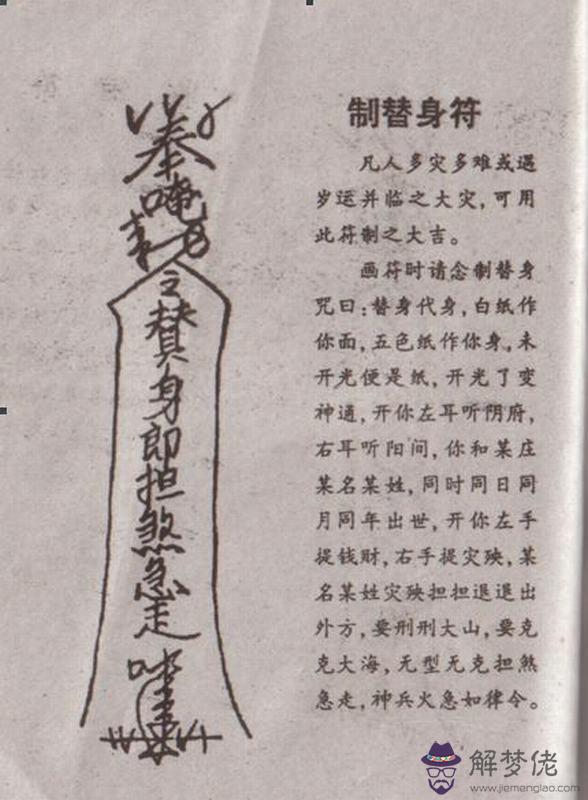 奉
唵
令
替身即担煞急走
制替身符
凡人多灾多难或遇
岁运并临之大灾,可用
此符制之大吉。
画符时请念制替身
咒曰:替身代身,白纸作
你面,五色纸作你身,未
开光便是纸,开光了变
神通,开你左耳听阴府,
右耳听阳间,你和某庄
某名某姓,同时同日同
月同年出世,开你左手
提钱财,右手提灾殃,某
名某姓灾殃担担退退出
外方,要刑刑大山,要克
克大海,无型无克担煞
急走,神兵火急如律令。
解梦佬
www.jiemenglao.com